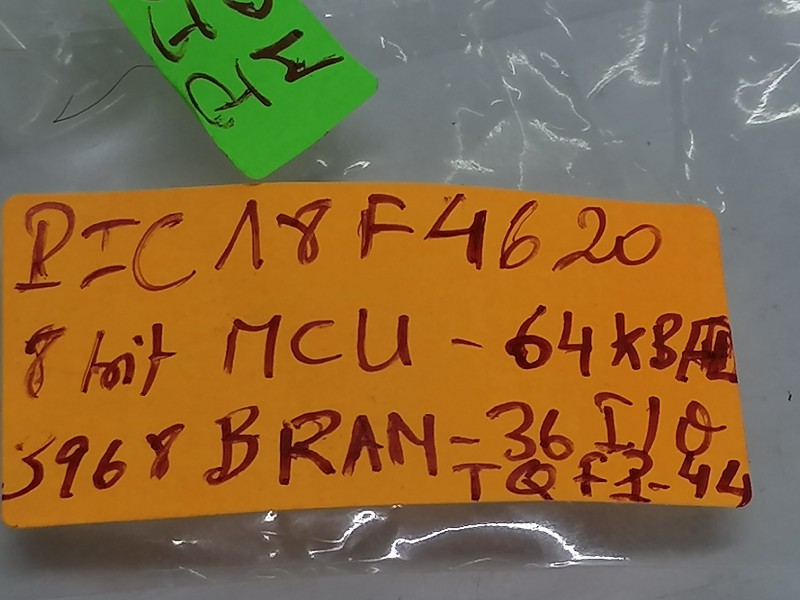 PIC18F4620
8 bit MCU - 64KB FL
3968 B RAM - 36 I/O
TQFP-44